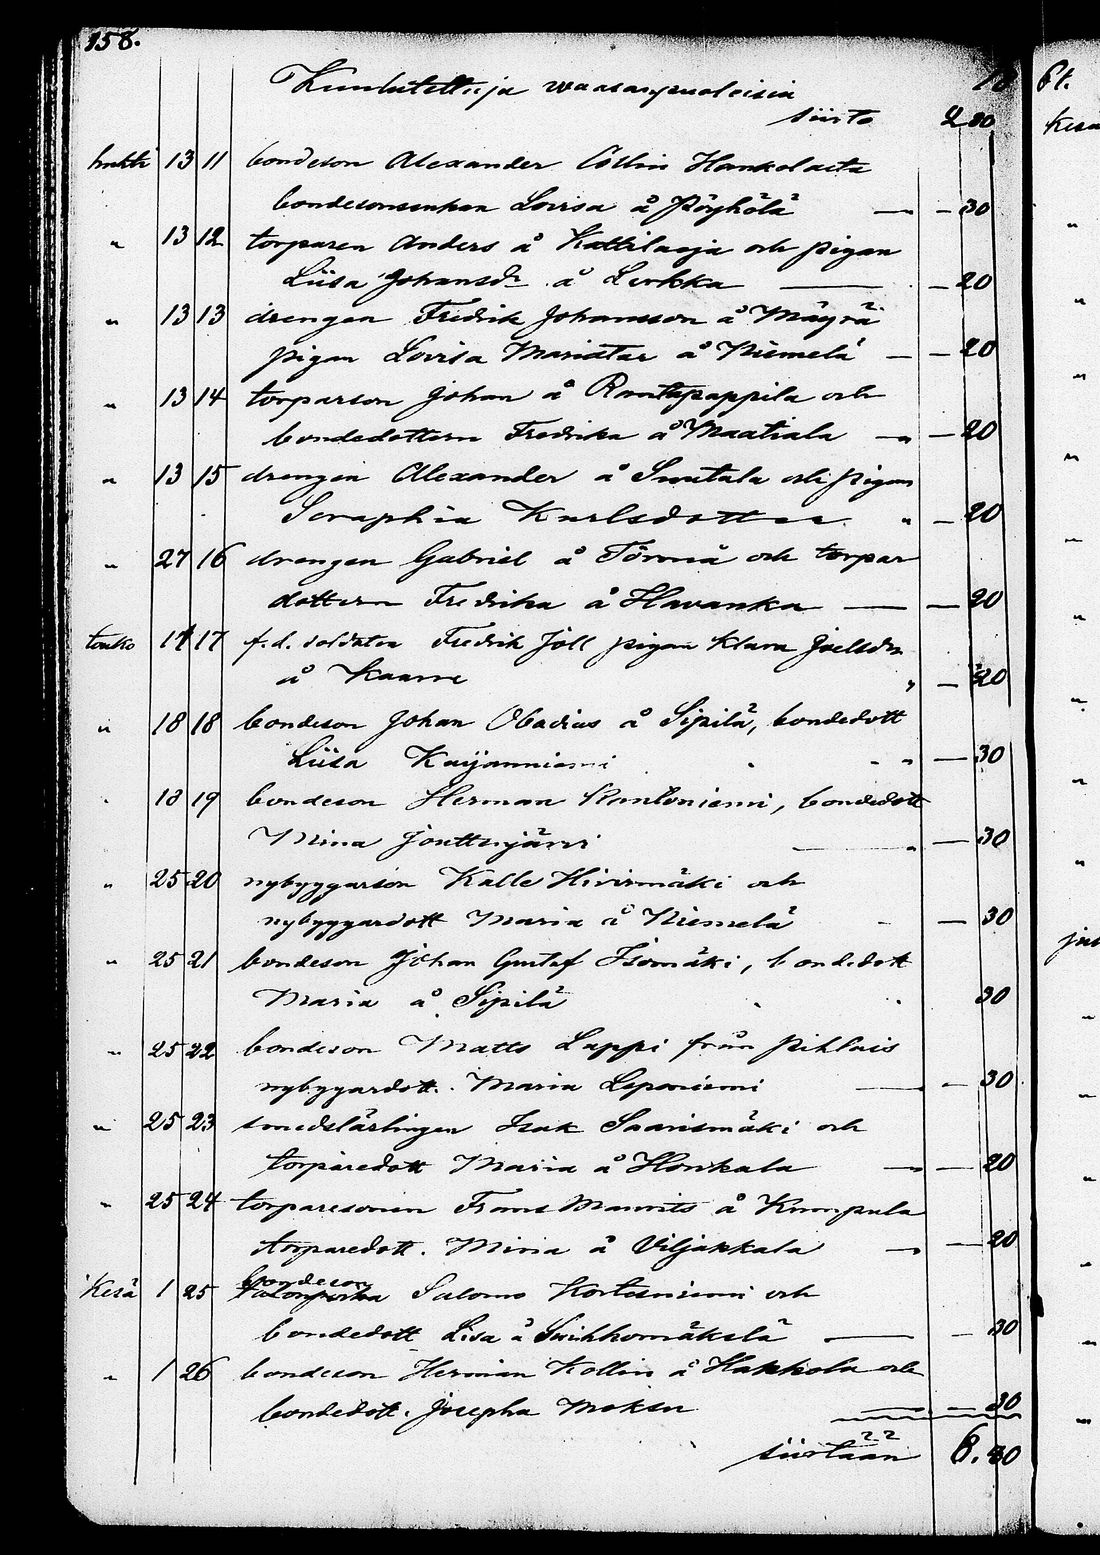 158.
Kuulutettuja waasanpuoleisia
siirto 2 80
huhti 13 11 bondeson Alexander Collin Hankolasta
bondesonenkan Lovisa å Pöyhölä — – 30
" 13 12 torparen Anders å Kattilaoja och pigan
Liisa Johansdr å Lerkka — – 20
" 13 13 drengen Fredrik Johansson å Mäyrä
pigan Lovisa Mariatar å Niemelä – – 20
" 13 14 torparson Johan å Rantapappila och
bondedottern Fredrika å Maatiala " – 20
" 13 15 drengen Alexander å Suutala och pigan
Seraphia Karlsdotter " – 20
" 27 16 drengen Gabriel å Törmä och torpar
dottern Fredrika å Havanka — – 20
touko 17 f.d. soldaten Fredrik Jöll pigan Klara Joelsdr
å Kaarre " – 20
" 18 18 bondeson Johan Obadias å Sipilä, bondedott
Liisa Karjanniemi " – 30
" 18 19 bondeson Herman Rantoniemi, bondedott
Mina Jouttenjärvi — – 30
" 25 20 nybyggarson Kalle Hirvimäki och
nybyggardott Maria å Niemelä – – 30
" 25 21 bondeson Johan Gustaf Isomäki, bondedott
Maria å Sipilä 30
" 25 22 bondeson Matts Lappi från Pihlais
nybyggardott. Maria Lepaniemi — – 30
" 25 23 smedslärlingen Isak Saarismäki och
torparedott Maria å Honkala — – 20
" 25 24 torparesonen Frans Maurits å Kumpula
torparedott. Miina å Viljakkala — – 20
Kesä 1 25 bondeson Salomo Kortesniemi och
bondedott Lisa å Suihkomäkelä — – 30
" 1 26 bondeson Herman Kollin å Hakkola och
bondedott. Josepha Moksu — – 30
siirtään 6.80